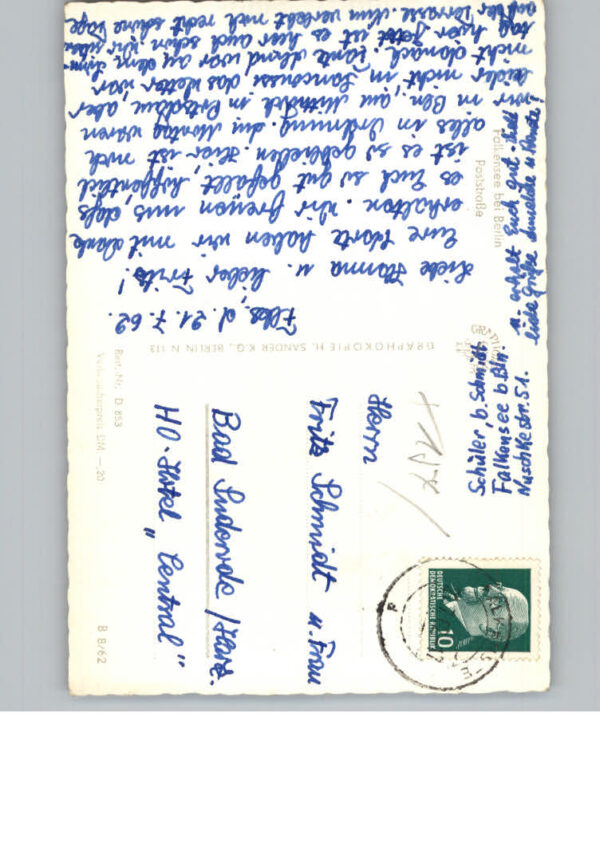 Flks, d. 21.7.62.
Liebe Hanna u. lieber Fritz!
Eure Karte haben wir mit Dank
erhalten. Wir freuen uns, daß
es Euch so gut gefällt, hoffentlich
ist es so geblieben. Hier ist noch
alles in Ordnung. Am Montag waren
wir in Bln., am Mittwoch in Potsdam aber
leider nicht in Sanssouci das Wetter war
nicht danach. Tante war an dem
tag hier jetzt ist es hier auch schön wir
auf der Terrasse. Nun verlebt noch recht schöne Tage
u. erholt Euch gut. Viele
liebe Grüße
Falkensee bei Berlin
Poststraße
GRAPHOKOPIE H. SANDER K.G., BERLIN N 113
Best.-Nr. D 853
Verbraucherpreis DM —,20
B 8/62
Schüler, b. Schmidt
Falkensee b. Bln.
Nuschkestr. 51.
Herrn
Fritz Schmidt u. Frau
Bad Suderode/Harz.
HO-Hotel "Central"
DEUTSCHE
DEMOKRATISCHE REPUBLIK
10